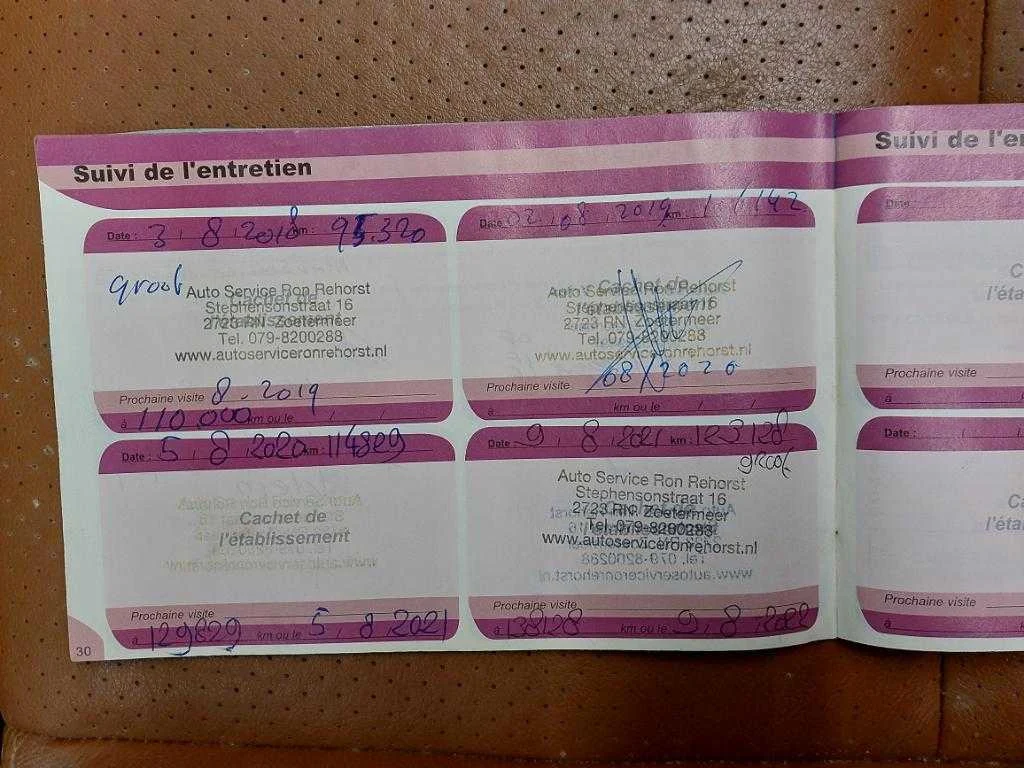 Suivi de l'entretien
Date : 3 / 8 / 2018 km : 95.320
groot
Auto Service Ron Rehorst
Stephensonstraat 16
2723 RN Zoetermeer
Tel. 079-8200288
www.autoserviceronrehorst.nl
Prochaine visite 8 - 2019
à 110.000 km ou le / /
Date 02 / 08 / 2019 km :
Auto Service Ron Rehorst
2723 RN Zoetermeer
Tel. 079-8200288
www.autoserviceronrehorst.nl
Prochaine visite 08/2020
à km ou le / /
Date : 5 / 8 / 2020 km : 114829
Cachet de
l'établissement
Prochaine visite
à 129829 km ou le 5 / 8 / 2021
Date : 9 / 8 / 2021 km : 123128
groot
Auto Service Ron Rehorst
Stephensonstraat 16
2723 RN Zoetermeer
Tel. 079-8200288
www.autoserviceronrehorst.nl
Prochaine visite
à 138128 km ou le 9 / 8 / 2022
30
Suivi de l'e
Date :
C
l'éta
Prochaine visite
à
Date : / /
C
l'éta
Prochaine visite
à